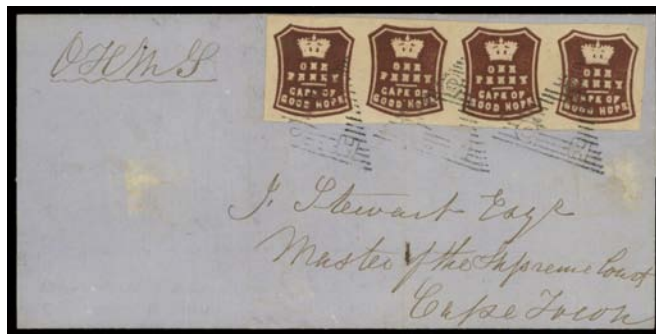 O H M S
ONE PENNY CAPE OF GOOD HOPE
ONE PENNY CAPE OF GOOD HOPE
ONE PENNY CAPE OF GOOD HOPE
ONE PENNY CAPE OF GOOD HOPE
J. Stewart Esqr
Master of the Supreme Court
Cape Town